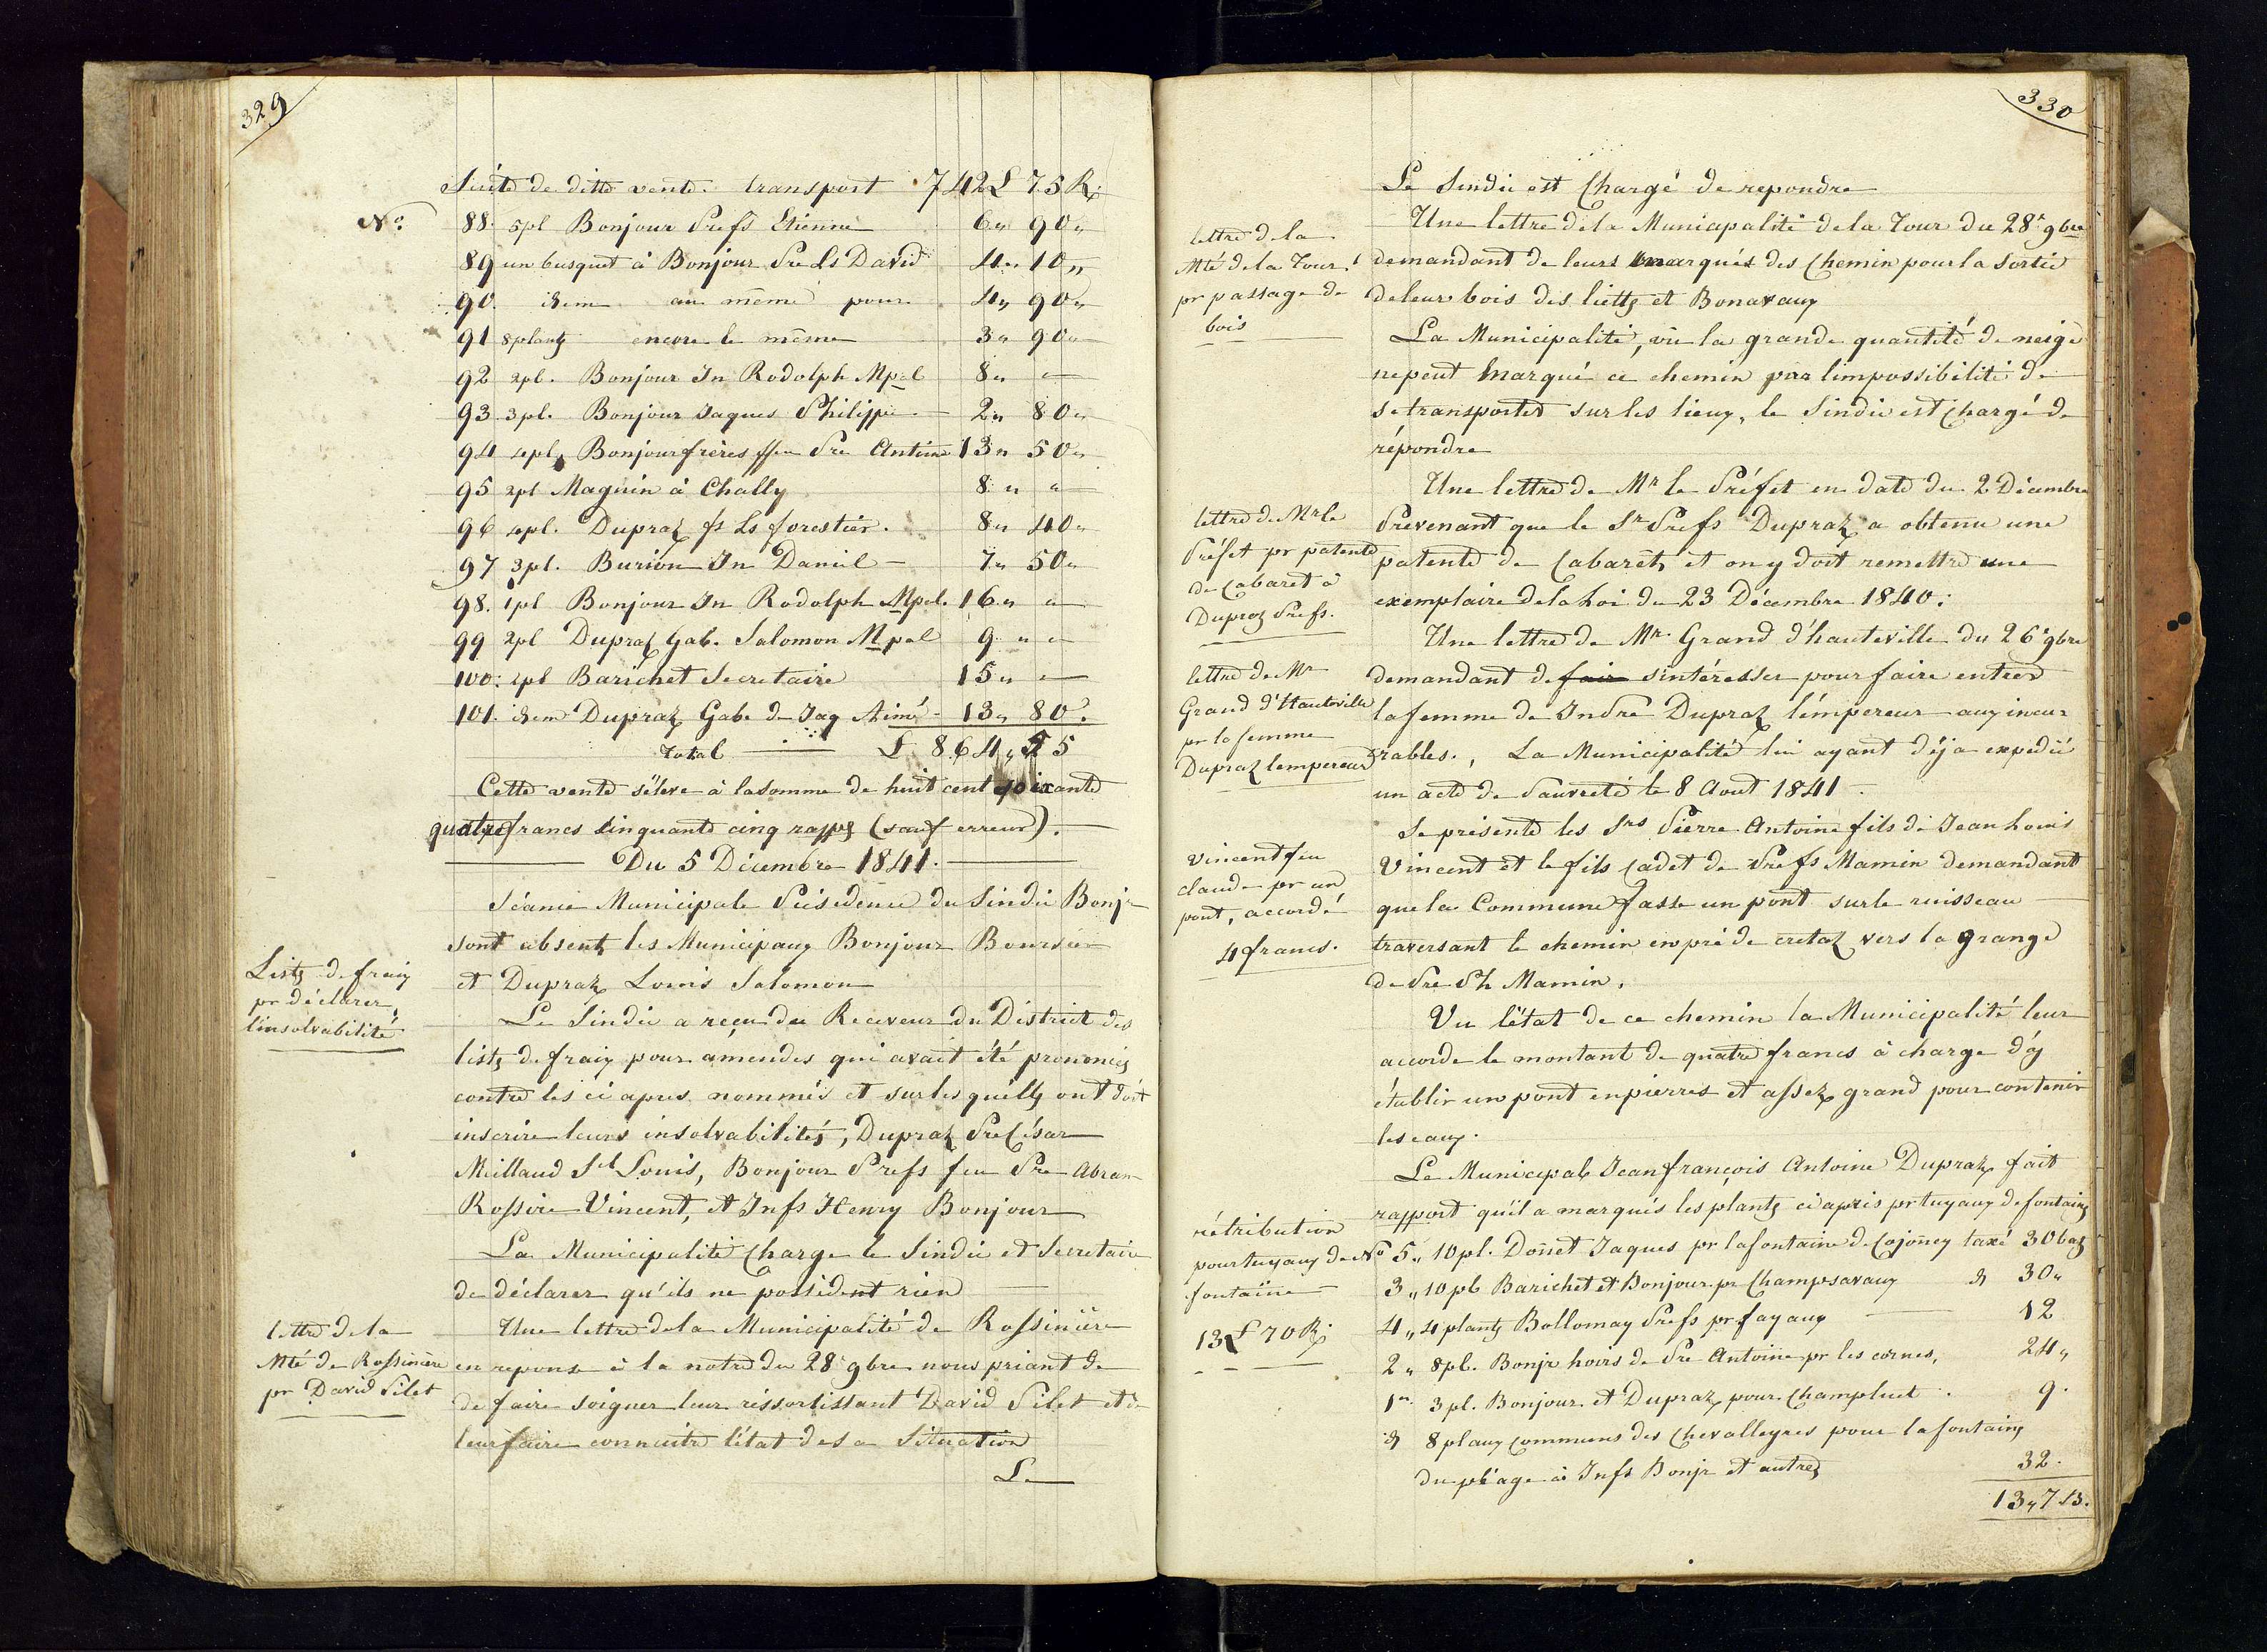 329
Suite de ditte vente. transport 742 L 75 R.
No. 88. 5pl Bonjour Prefs Etienne 6 " 90 "
89 un busquet à Bonjour Pre Ls David 4 " 10 "
90. idem au même pour 4 " 90 "
91 8plants encore le même 3 " 90 "
92 2pl. Bonjour Jn Rodolph Mpal 8 " "
93 3pl. Bonjour Jaques Philippe 2 " 80 "
94 4pl. Bonjour frères ffeu Pre Antoine 13 " 50 "
95 2pl Magnin à Chally 8 " "
96 4pl. Dupraz fs Ls forestier. 8 " 40 "
97 3pl. Burion Jn Daniel 7 " 50 "
98. 1pl Bonjour Jn Rodolph Mpal. 16 " "
99 2pl Dupraz Gab. Salomon Mpal 9 " "
100: 2pl Barichet Secretaire 15 " "
101. idem Dupraz Gab. de Jaq Aimé 13 " 80.
Total L 864 " 55
Cette vente s'éleve à la somme de huit cent soixante
quatre francs cinquante cinq rapps (sauf erreur).
Du 5 Décembre 1841.
Séance Municipale Présidence du Sindic Bonjr
sont absents les Municipaux Bonjour Boursier
et Dupraz Louis Salomon
Lists de fraix
pr déclarer
l'insolvabilité
Le Sindic a reçu du Receveur du District des
lists de fraix pour amendes qui avait été prononcés
contre les ci apres nommés et sur les quells ont doit
inscrire leurs insolvabilités, Dupraz Pre César
Millaud Sl Louis, Bonjour Prefs feu Pre Abram
Rossire Vincent, et Jnfs Henry Bonjour
La Municipalité charge le Sindic et Secretaire
de déclarer qu'ils ne possident rien
lettre de la
Mté de Rossinière
pr David Pilet
Une lettre de la Municipalité de Rossinière
en reponse à la notre du 28 9bre nous priant de
de faire soigner leur ressortissant David Pilet et de
leur faire connaitre l'état de sa situation
Le
330
Le Sindic est Chargé de repondre
lettre de la
Mté de la Tour
pr passage de
bois
Une lettre de la Municipalité de la Tour du 28e 9bre
demandant de leurs marqués des Chemin pour la sortie
de leur bois des lietts et Bonavaux
La Municipalité, vû la grande quantité de neige
ne peut marqué ce chemin par l'impossibilité de
se transporter sur les lieux, le Sindic est Chargé de
répondre
lettre de Mr le
Préfet pr patente
de Cabaret à
Dupraz Prefs.
Une lettre de Mr le Préfet en date du 2 Décembre
Prévenant que le Sr Prefs Dupraz a obtenu une
patente de Cabaret, et on y doit remettre une
exemplaire de la Loi du 23 Décembre 1840.
lettre de Mr
Grand d'Hauteville
pr la femme
Dupraz lempereur
Une lettre de Mr. Grand d'hauteville du 26e 9bre
demandant de fair s'intéresser pour faire entrer
la femme de André Dupraz l'émpereur aux incur
rables., La Municipalité lui ayant déja expédié
un acte de Pauvreté le 8 Aout 1841.
Vincent feu
claude pr un
pont, accordé
4 francs.
Se présente les Srs Pierre Antoine fils de Jean Louis
Vincent et le fils cadet de Prefs Mamin demandant
que la Commune fasse un pont sur le ruisseau
traversant le chemin en pré de cretaz vers la grange
de Pre Ph Mamin.
Vu l'état de ce chemin la Municipalité leur
accorde le montant de quatre francs à charge d'y
établir un pont en pierres et assez grand pour contenir
les eaux.
Le Municipal Jean françois Antoine Dupraz fait
rapport qu'il a marqués les plants ci apris pr tuyaux de fontains
rétribution
pour tuyaux de
fontaine
13 L 70 R.
No 5 " 10pl. Donnet Jaques pr la fontaine de Cojonney taxé 30 batz
3 " 10pl Barichet et Bonjour pr Champsavaux id 30 "
4 " 4plants Bollomay Prefs pr fayaux 12
2 " 8pl. Bonjr hoirs de Pre Antoine pr les cornes, 24 "
1 " 3pl. Bonjour et Dupraz pour Champluet. 9.
id 8pl aux communs des Chevalleyres pour la fontains
du pléage à Jnfs Bonjr et autres 32.
13 " 7 B.